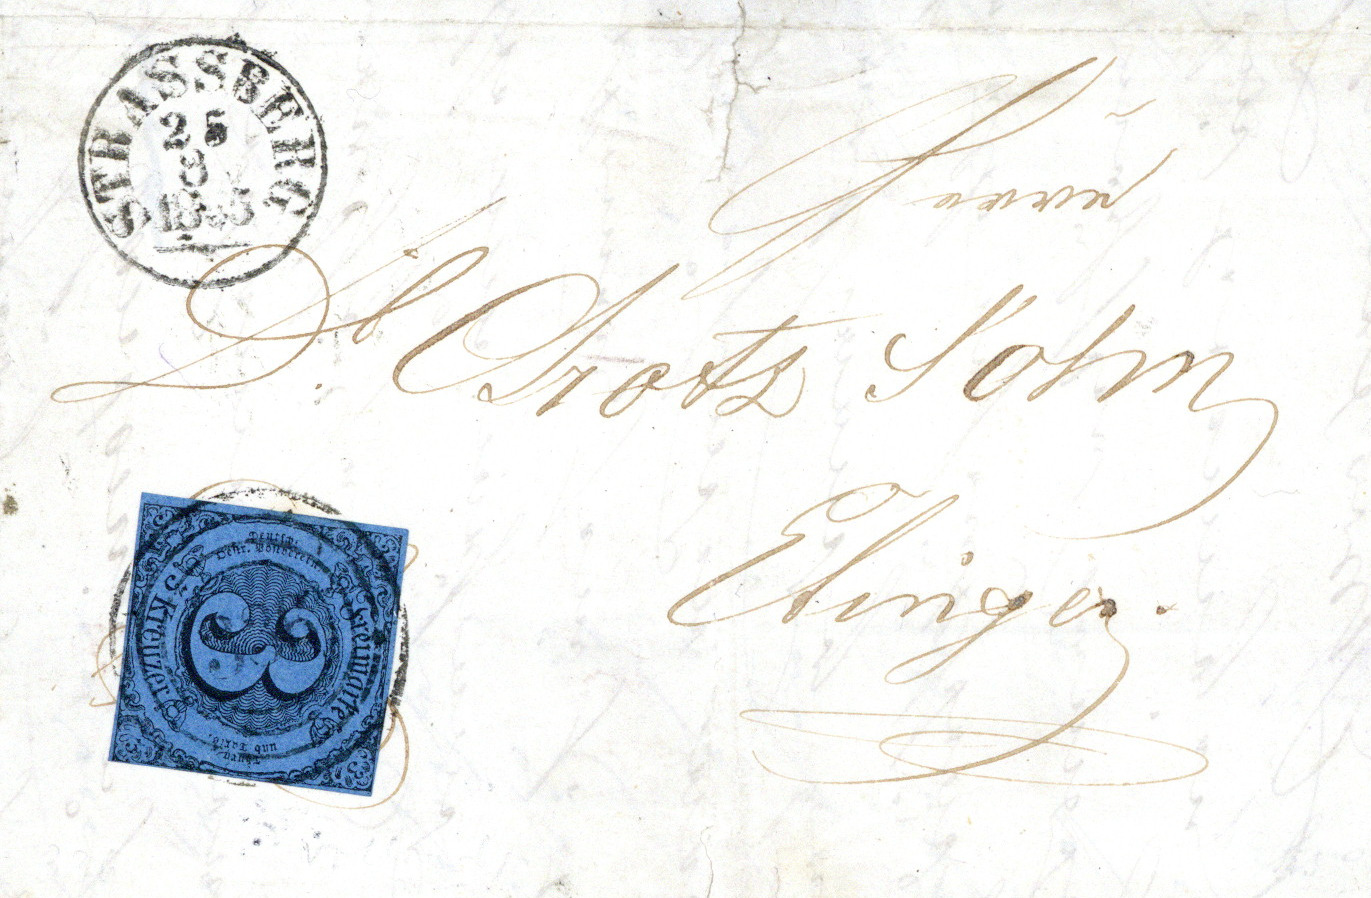 STRASSBERG
25
8
1855
Herrn
Drotz Sohn
Ebingen.
Deutsch-
Oestr. Postverein
3 Kreuzer.
Freimarke
3
Thurn
und Taxis.